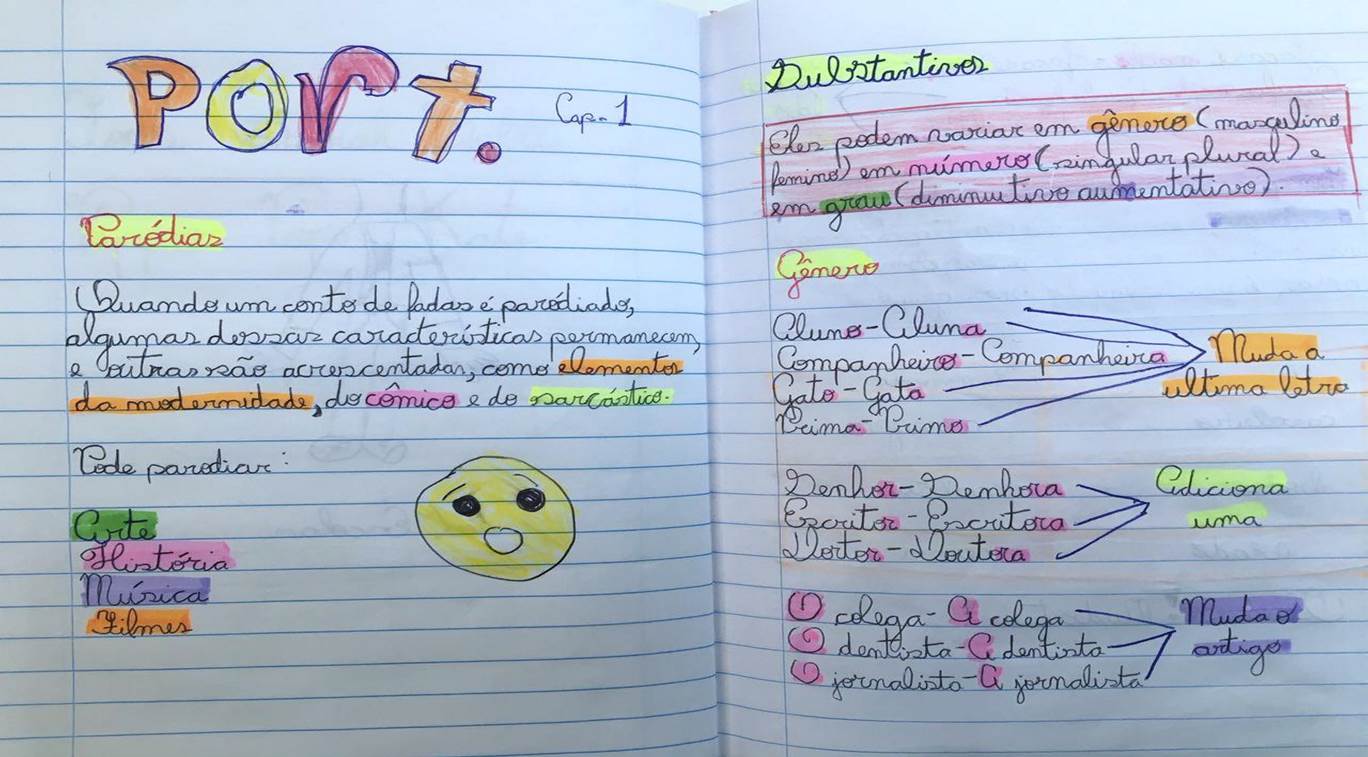 Port.
Cap. 1
Paródias
Quando um conto de fadas é parodiado,
algumas dessas características permanecem,
e outras são acrescentadas, como elementos
da modernidade, do cômico e do sarcástico.
Pode parodiar:
Arte
História
Música
Filmes
Substantivos
Eles podem variar em gênero (masculino
feminino) em número (singular plural) e
em grau (diminutivo aumentativo).
Gênero
Aluno - Aluna
Companheiro - Companheira
Gato - Gata
Prima - Primo
Muda a
ultima letra
Senhor - Senhora
Escritor - Escritora
Doutor - Doutora
Adiciona
uma
O colega - A colega
O dentista - A dentista
O jornalista - A jornalista
Muda o
artigo